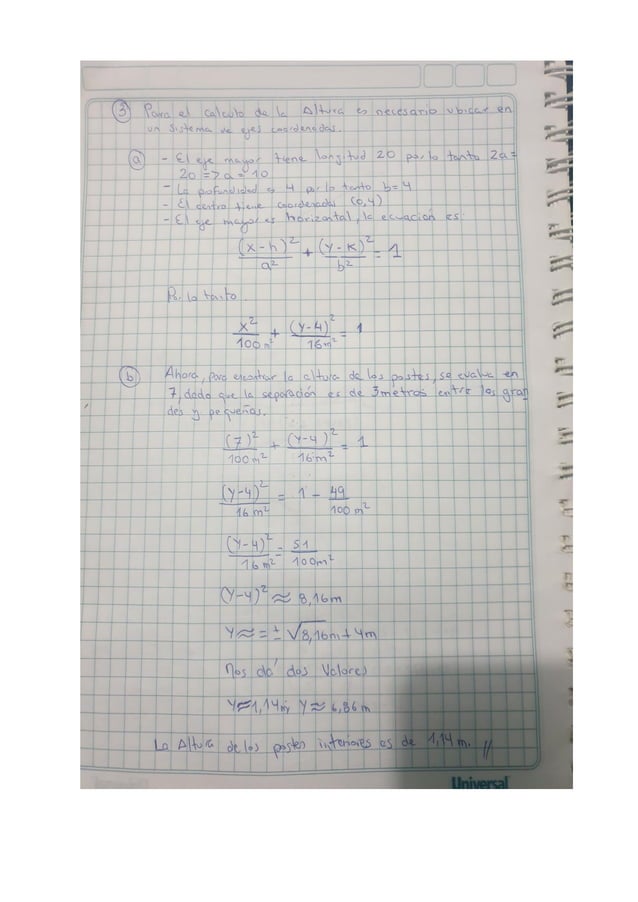 ③ Para el calculo de la Altura es necesario ubicar en
un sistema de ejes coordenadas.
ⓐ - El eje mayor tiene longitud 20 por lo tanto 2a =
20 => a = 10
- La profundidad es 4 por lo tanto b = 4
- El centro tiene coordenadas (0,4)
- El eje mayor es horizontal, la ecuación es:
(x-h)²/a² + (y-k)²/b² = 1
Por lo tanto.
x²/100m² + (y-4)²/16m² = 1
ⓑ Ahora, para encontrar la altura de los postes, se evalua en
7, dado que la separación es de 3 metros entre los gran
des y pequeños.
(7)²/100m² + (y-4)²/16m² = 1
(y-4)²/16m² = 1 - 49/100m²
(y-4)²/16m² = 51/100m²
(y-4)² ≈ 8,16m
y ≈ = ± √8,16m + 4m
Nos da dos Valores
y ≈ 1,14m; y ≈ 6,86m
La Altura de los postes interiores es de 1,14m. //
Universal